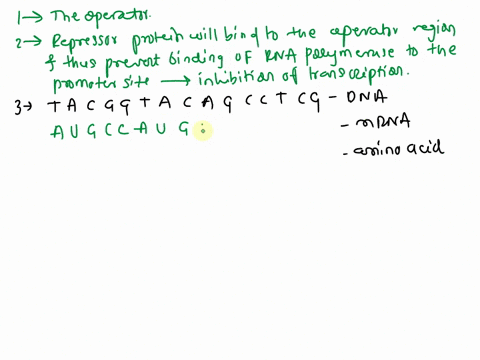 1→ The operator.
2→ Repressor protein will bind to the operator region
& thus prevent binding of RNA polymerase to the
promoter site → inhibition of transcription.
3→ T A C G G T A C A G C C T C G - DNA
A U G C C A U G
- mRNA
- amino acid